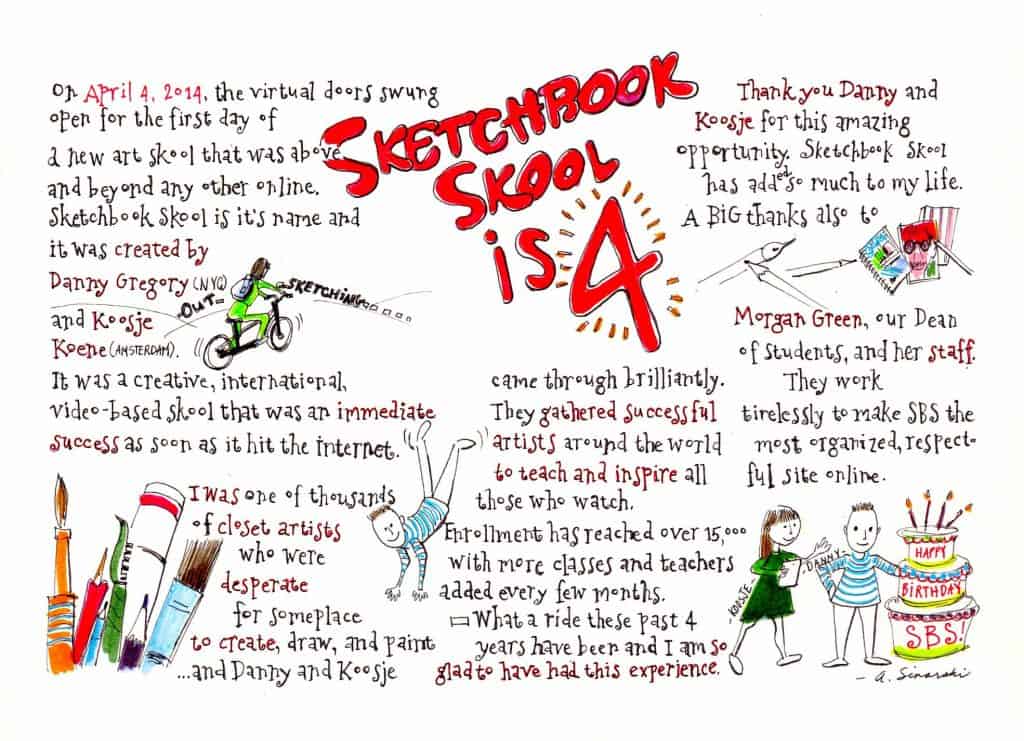 SKETCHBOOK
SKOOL
is 4
On April 4, 2014, the virtual doors swung
open for the first day of
a new art skool that was above
and beyond any other online.
Sketchbook Skool is it's name and
it was created by
Danny Gregory (NYC)
and Koosje
Koene (AMSTERDAM).
OUT SKETCHING
It was a creative, international,
video-based skool that was an immediate
success as soon as it hit the internet.
I was one of thousands
of closet artists
who were
desperate
for someplace
to create, draw, and paint
...and Danny and Koosje
came through brilliantly.
They gathered successful
artists around the world
to teach and inspire all
those who watch.
Enrollment has reached over 15,000
with more classes and teachers
added every few months.
What a ride these past 4
years have been and I am so
glad to have had this experience.
Thank you Danny and
Koosje for this amazing
opportunity. Sketchbook Skool
has added so much to my life.
A BIG thanks also to
Morgan Green, our Dean
of Students, and her staff.
They work
tirelessly to make SBS the
most organized, respect-
ful site online.
KOOSJE
DANNY
HAPPY
BIRTHDAY
SBS!